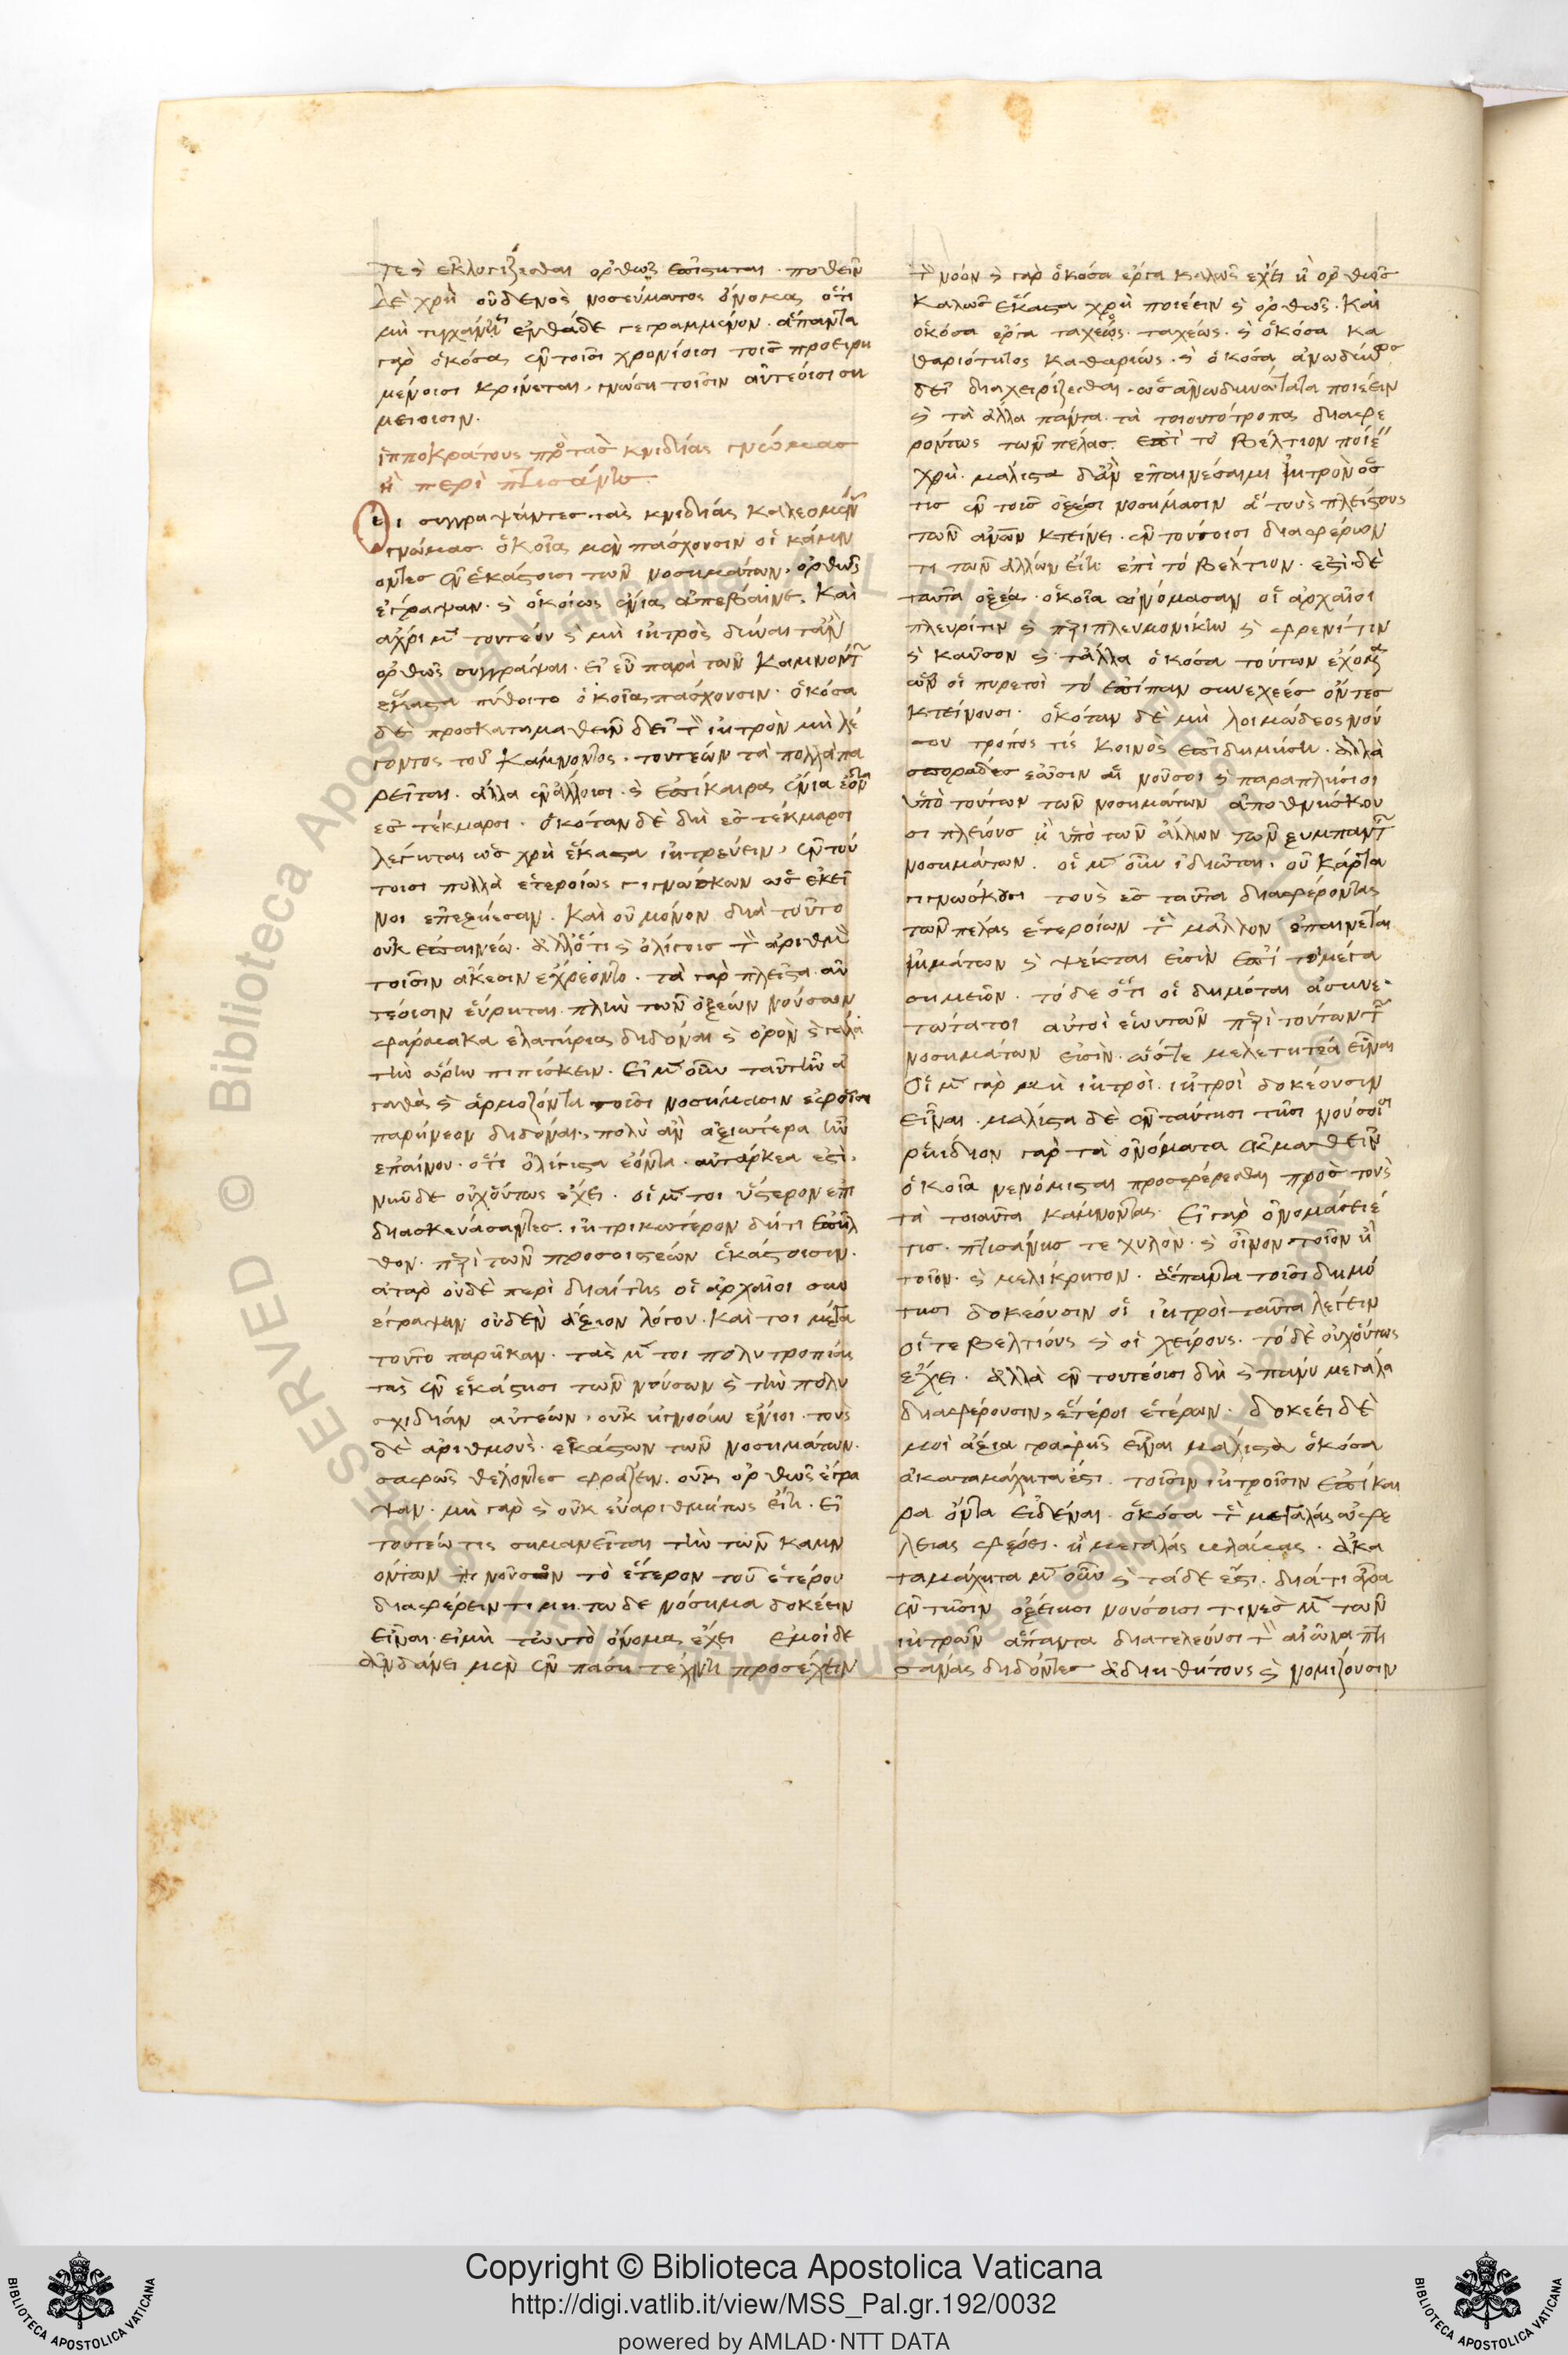 τε καὶ ἐκλογίζεσθαι ὀρθῶς ἐπίστηται. ποθεῖν
δὲ χρὴ οὐδενὸς νοσεύματος ὄνομα ὅτι
μὴ τυγχάνῃ ἐνθάδε γεγραμμένον. ἅπαντα
γὰρ ὁκόσα ἐν τοῖσι χρονίοισι τοῖς προειρη
μένοισι κρίνεται, γνώσῃ τοῖσιν αὐτέοισι ση
μείοισιν.
ἱπποκράτους πρὸς τὰς κνιδίας γνώμας
ἢ περὶ πτισάνης
οἱ συγγράψαντες τὰς κνιδίας καλεομένας
γνώμας ὁκοῖα μὲν πάσχουσιν οἱ κάμν
οντες ἐν ἑκάστοισι τῶν νοσημάτων, ὀρθῶς
ἔγραψαν. καὶ ὁκοίως ἔνια ἀπέβαινε. καὶ
ἄχρι μὲν τουτέων καὶ μὴ ἰητρὸς δύναιτ' ἂν
ὀρθῶς συγγράψαι. εἰ εὖ παρὰ τῶν καμνόντων
ἕκαστα πύθοιτο ὁκοῖα πάσχουσιν. ὁκόσα
δὲ προσκαταμαθεῖν δεῖ τὸν ἰητρὸν μὴ λέ
γοντος τοῦ κάμνοντος. τουτέων τὰ πολλὰ πα
ρεῖται. ἄλλα ἐν ἄλλοισι. καὶ ἐπίκαιρα ἔνια ἐόντα
ἐς τέκμαρσι. ὁκόταν δὲ δὴ ἐς τέκμαρσι
λέγηται ὡς χρὴ ἕκαστα ἰητρεύειν, ἐν τού
τοισι πολλὰ ἑτεροίως γιγνώσκων ὡς ἐκεῖ
νοι ἐπεξῄεσαν. καὶ οὐ μόνον διὰ τοῦτο
οὐκ ἐπαινέω. ἀλλ' ὅτι καὶ ὀλίγοις τὸν ἀριθμὸν
τοῖσιν ἄκεσιν ἐχρέοντο. τὰ γὰρ πλεῖστα αὐ
τέοισιν εὕρηται πλὴν τῶν ὀξέων νούσων
φάρμακα ἐλατήρια διδόναι καὶ ὀρὸν καὶ γάλα
τὴν ὥρην πιπίσκειν. εἰ μὲν οὖν ταῦτ' ἦν ἀ
γαθὰ καὶ ἁρμόζοντα τοῖσι νοσήμασιν ἐφ' οἷσι
παρῄνεον διδόναι, πολὺ ἂν ἀξιώτερα ἦν
ἐπαίνου. ὅτι ὀλίγιστα ἐόντα αὐτάρκεα ἐστί.
νῦν δὲ οὐχ οὕτως ἔχει. οἱ μέντοι ὕστερον ἐπι
διασκευάσαντες ἰητρικώτερον δή τι ἐπῆλ
θον. περὶ τῶν προσοιστέων ἑκάστοισιν.
ἀτὰρ οὐδὲ περὶ διαίτης οἱ ἀρχαῖοι συν
έγραψαν οὐδὲν ἄξιον λόγου. καί τοι μέγα
τοῦτο παρῆκαν. τὰς μέντοι πολυτροπίας
τὰς ἐν ἑκάστῃσι τῶν νούσων καὶ τὴν πολυ
σχιδίαν αὐτέων, οὐκ ἠγνόουν ἔνιοι. τοὺς
δὲ ἀριθμοὺς ἑκάστων τῶν νοσημάτων
σαφῶς θέλοντες φράζειν. οὐκ ὀρθῶς ἔγρα
ψαν. μὴ γὰρ καὶ οὐκ εὐαρίθμητος εἴη. εἰ
τουτέῳ τις σημανεῖται τὴν τῶν καμν
όντων νοῦσον τὸ ἕτερον τοῦ ἑτέρου
διαφέρειν τι μὴ τὠυτὸ δὲ νόσημα δοκέειν
εἶναι εἰ μὴ τὠυτὸ ὄνομα ἔχει ἐμοὶ δὲ
ἁνδάνει μὲν ἐν πάσῃ τέχνῃ προσέχειν
τὸν νόον καὶ γὰρ ὁκόσα ἔργα καλῶς ἔχει ἢ ὀρθῶς
καλῶς ἕκαστα χρὴ ποιέειν καὶ ὀρθῶς. καὶ
ὁκόσα ἔργα ταχέως. ταχέως. καὶ ὁκόσα κα
θαριότητος καθαρίως. καὶ ὁκόσα ἀνωδύνως
δεῖ διαχειρίζεσθαι. ὡς ἀνωδυνώτατα ποιέειν
καὶ τὰ ἄλλα πάντα τὰ τοιουτότροπα διαφε
ρόντως τῶν πέλας ἐπὶ τὸ βέλτιον ποιέειν
χρή. μάλιστα δ' ἂν ἐπαινέσαιμι ἰητρὸν ὅσ
τις ἐν τοῖς ὀξέσι νοσήμασιν ἃ τοὺς πλείστους
τῶν ἀνθρώπων κτείνει. ἐν τούτοισι διαφέρων
τι τῶν ἄλλων εἴη ἐπὶ τὸ βέλτιον. ἔστι δὲ
ταῦτα ὀξέα. ὁκοῖα ὠνόμασαν οἱ ἀρχαῖοι
πλευρῖτιν καὶ περιπλευμονίην καὶ φρενῖτιν
καὶ καῦσον καὶ τἄλλα ὁκόσα τούτων ἐχόμενα
ὧν οἱ πυρετοὶ τὸ ἐπίπαν συνεχέες ὄντες
κτείνουσι. ὁκόταν δὲ μὴ λοιμώδεος νού
σου τρόπος τις κοινὸς ἐπιδημήσῃ. ἀλλὰ
σποράδες ἐῶσιν αἱ νοῦσοι καὶ παραπλήσιοι
ὑπὸ τούτων τῶν νοσημάτων ἀποθνήσκου
σι πλείους ἢ ὑπὸ τῶν ἄλλων τῶν ξυμπάντων
νοσημάτων. οἱ μὲν οὖν ἰδιῶται. οὐ κάρτα
γινώσκουσι τοὺς ἐς ταῦτα διαφέροντας
τῶν πέλας ἑτεροίων τε μᾶλλον ἐπαινέται
ἰημάτων καὶ ψέκται εἰσὶν ἐπεὶ τὸ μέγα
σημεῖον. τόδε ὅτι οἱ δημόται ἀσυνε
τώτατοι αὐτοὶ ἑωυτῶν περὶ τούτων τῶν
νοσημάτων εἰσὶν. ὥστε μελετητέα εἶναι
οἱ μὲν γὰρ μὴ ἰητροὶ. ἰητροὶ δοκέουσιν
εἶναι. μάλιστα δὲ ἐν ταύτῃσι τῇσι νούσοισι
ῥηίδιον γὰρ τὰ ὀνόματα ἐκμαθεῖν
ὁκοῖα νενόμισται προσφέρεσθαι πρὸς τοὺς
τὰ τοιαῦτα κάμνοντας. εἰ γὰρ ὀνομάσειέ
τις. πτισάνης τε χυλὸν. καὶ οἶνον τοῖον ἢ
τοῖον. καὶ μελίκρητον. ἅπαντα τοῖσι δημό
τῃσι δοκέουσιν οἱ ἰητροὶ ταῦτα λέγειν
οἵ τε βελτίους καὶ οἱ χείρους. τὸ δὲ οὐχ οὕτως
ἔχει. ἀλλὰ ἐν τουτέοισι δὴ καὶ πάνυ μεγάλα
διαφέρουσιν, ἕτεροι ἑτέρων. δοκέει δὲ
μοὶ ἄξια γραφῆς εἶναι μάλιστα ὁκόσα
ἀκαταμάχητα ἐστι. τοῖσιν ἰητροῖσιν ἐπίκαι
ρα ὄντα εἰδέναι. ὁκόσα τε μεγάλας ὠφε
λείας φέρει. ἢ μεγάλας βλάβας. ἀκα
ταμάχητα μὲν οὖν καὶ τάδε ἐστι. διὰ τί ἄρα
ἐν τῇσιν ὀξείῃσι νούσοισι τινὲς μὲν τῶν
ἰητρῶν ἅπαντα διατελεῦσι τὸν αἰῶνα πτι
σάνας διδόντες ἀδιηθήτους καὶ νομίζουσιν
Copyright © Biblioteca Apostolica Vaticana
http://digi.vatlib.it/view/MSS_Pal.gr.192/0032
powered by AMLAD·NTT DATA
BIBLIOTECA APOSTOLICA VATICANA
BIBLIOTECA APOSTOLICA VATICANA